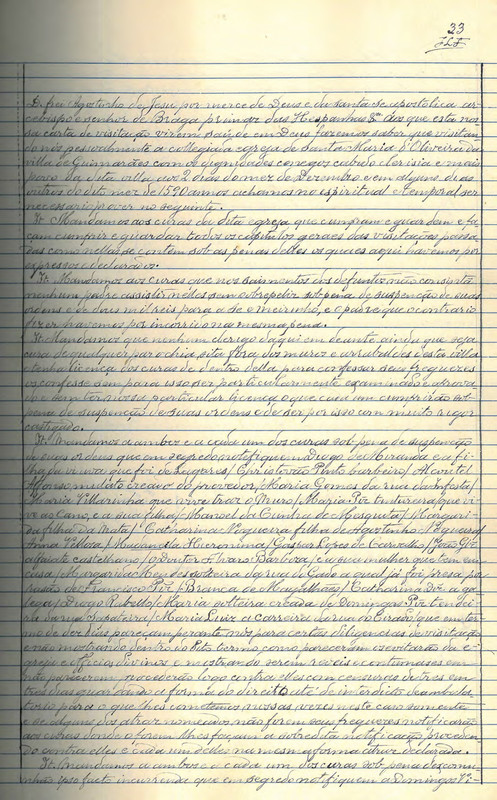 33
D. frei Agostinho de Jesu, por merce de Deus e da santa se apostolica ar-
cebispo e senhor de Braga primaz das Hespanhas &ª aos que esta nos-
sa carta de visitação virem saúde em Deus fazemos saber que visitan-
do nós pessoalmente a collegiada egreja de Santa Maria d'Oliveira da
villa de Guimarães com o dignidades conegos cabido clerisia e mais
povo da dita villa aos 2 dias do mez de Dezembro e em alguns dias
outros do dito mez de 1590 annos achamos no espiritual e temporal ser
necessario prover no seguinte.
It. Mandamos aos curas da dita egreja que cumpram e guardem e fa-
çam cumprir e guardar todos os capitulos geraes das visitações passa-
das como nellas se contém sob as penas delles os quaes aqui havemos por
expressos e declarados.
It. Mandamos aos curas que nos saimentos dos defuntos não consinta
nenhum padre assistir nelles sem sobrepeliz sob pena de suspenção de suas
ordens e de dous mil reis para a Sé e meirinho, e o padre que o contrario
fizer havemos por incorrido na mesma pena.
It. Mandamos que nenhum clerigo daqui em deante, ainda que seja
cura de qualquer parochia sita fóra dos muros e arrabaldes desta villa
e tenha licença dos curas de dentro della para confessar seus freguezes
os confesse sem para isso ser particularmente examinado e aprova-
do e sem ter nossa particular licença o que cada um cumprirão sob
pena de suspenção de suas ordens e de ser por isso com muito rigor
castigado.
It. Mandamos a ambos e a cada um dos curas sob pena de suspenção
de suas ordens que em segredo notifiquem Diogo de Miranda e a fi-
lha da viuva que foi de Lagares / Christovão Pinto barbeiro /
Affonso mulato creado do provedor / Maria Gomes da rua da Infesta /
Maria Villarinha que vive traz o Muro / Maria Piz tintureira que vi-
ve ao Cano, e a sua filha / Manoel da Cunha de Mesquita / Margari-
da filha da Mata / Catharina Nogueira filha de Agostinho Nogueira /
Anna Velloza / Magdanella Hieronima / Gaspar Lopes de Carvalho / João Glz
alfaiate castelhano / o Doutor Alvaro Barboza, e a sua mulher que tem em
casa / Margarida Mendes solteira da rua do Gado a qual já foi presa por
razão de Francisco Piz / Branca de Magalhães / Catharina Diz a ga-
lega / Diogo Rabello / Maria solteira creada de Domingos Piz tendei-
ro da rua Sapateira / Maria Luiz a Carreira da rua do Eirado, que em ter-
mo de dez dias pareçam perante nós para certas diligencias da visitação
e não mostrando dentro do dito termo como pareceram os evitarão da e-
greja e officios divinos e mostrando serem reveis e contumases em
não parecerem procederão logo contra elles com censuras de tres em
tres dias guardando a forma do direito até de interdito deambulatorio
para o que lhes comettemos nossas vezes neste caso somente
e se alguns dos atraz nomeados não forem seus freguezes notificarão
aos curas donde o forem lhes façam a sobredita notificação proceden-
do contra elles e cada um delles na mesma forma atraz declarada.
It. Mandamos a ambos e a cada um dos curas sob pena de excomu-
nhão ipso facto incurrenda que em segredo notifiquem a Domingos Vi-